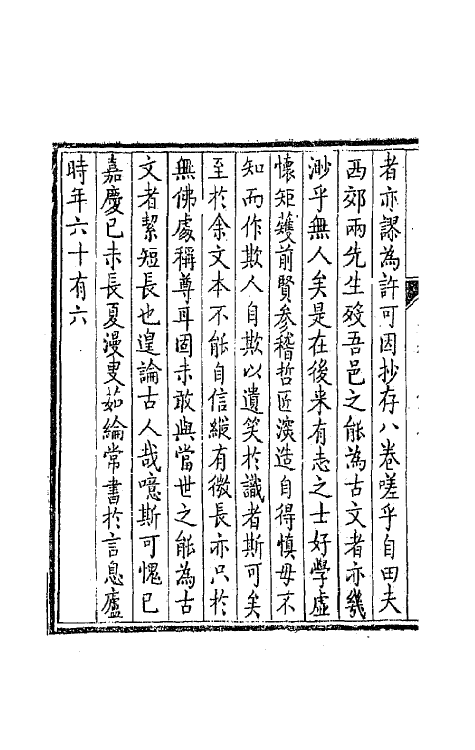 者亦謬為許可因抄存八卷嗟乎自田夫
西郊兩先生歿吾邑之能為古文者亦幾
渺乎無人矣是在後来有志之士好學虛
懷矩矱前賢參稽哲匠深造自得慎毋不
知而作欺人自欺以遺笑於識者斯可矣
至於余文本不能自信縱有微長亦只於
無佛處稱尊耳固未敢與當世之能為古
文者絜短長也遑論古人哉噫斯可愧已
嘉慶己未長夏漫叟茹綸常書於言息廬
時年六十有六